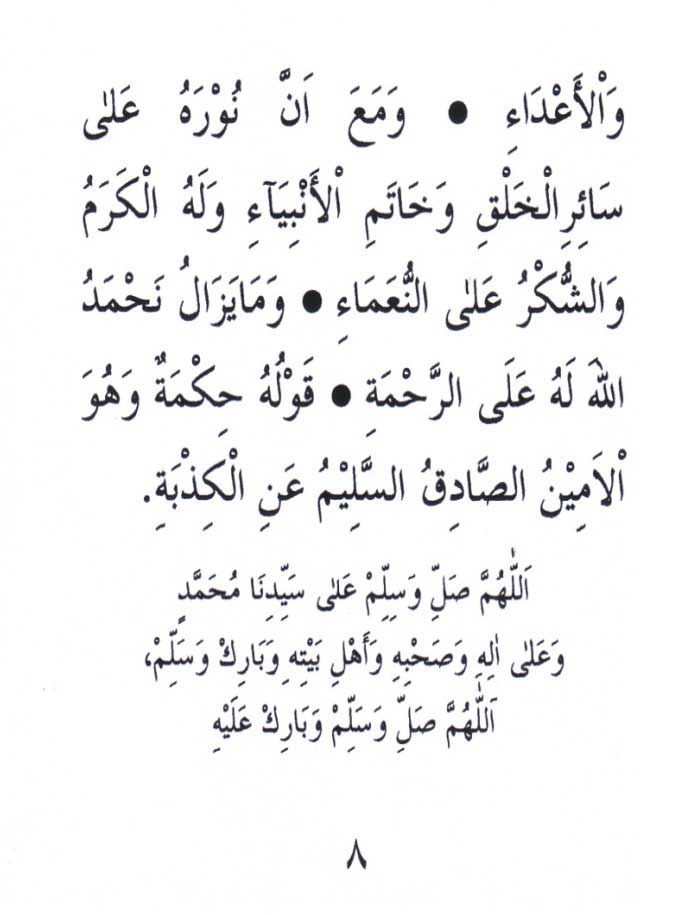 وَاْلأَعْدَاءِ ● وَمَعَ اَنَّ نُوْرَهُ عَلٰى
سَائِرِالْخَلْقِ وَخَاتَمِ اْلأَنْبِيَآءِ وَلَهُ الْكَرَمُ
وَالشُّكْرُ عَلٰى النُّعَمَاءِ ● وَمَايَزَالُ نَحْمَدُ
اللهَ لَهُ عَلَى الرَّحْمَةِ ● قَوْلُهُ حِكْمَةٌ وَهُوَ
اْلاَمِيْنُ الصَّادِقُ السَّلِيْمُ عَنِ الْكِذْبَةِ.
اَللّٰهُمَّ صَلِّ وَسَلِّمْ عَلٰى سَيِّدِنَا مُحَمَّدٍ
وَعَلٰى اٰلِهِ وَصَحْبِهِ وَأَهْلِ بَيْتِهِ وَبَارِكْ وَسَلِّمْ،
اَللّٰهُمَّ صَلِّ وَسَلِّمْ وَبَارِكْ عَلَيْهِ
٨